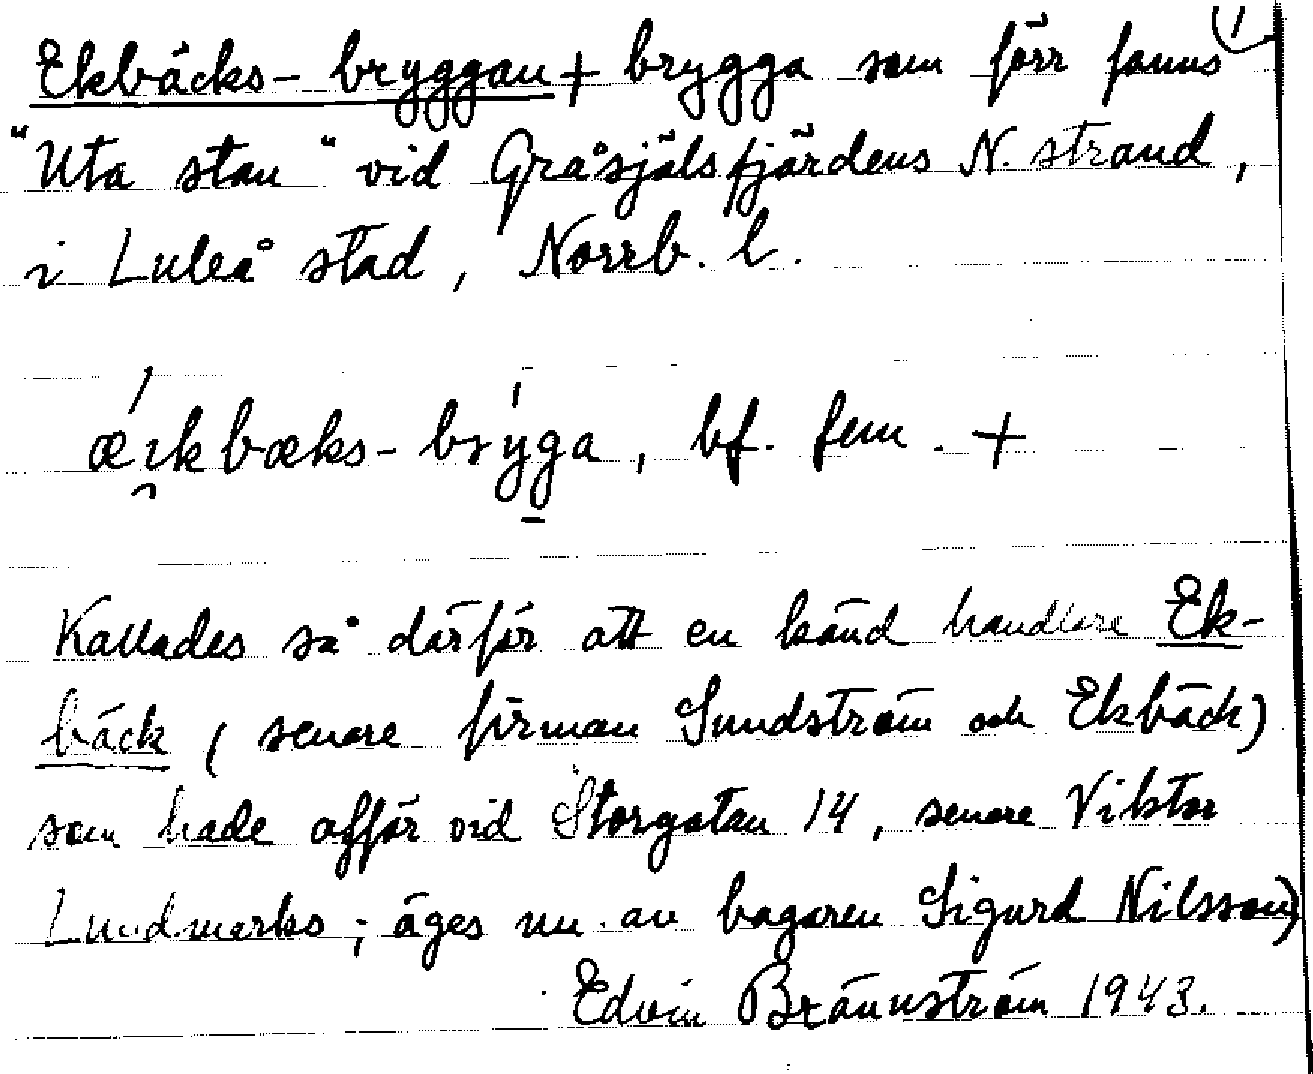 Ekbäcks-bryggan + brygga som förr fanns 1)
"Uta stan" vid Gråsjälsfjärdens N. strand,
i Luleå stad, Norrb. l.
bf. fem. +
Kallades så därför att en känd handlare Ek-
bäck (senare firman Sundström och Ekbäck)
som hade affär vid Storgatan 14, senare Viktor
Lundmarks; äges nu av bagaren Sigurd Nilsson)
Edvin Brännström 1943.